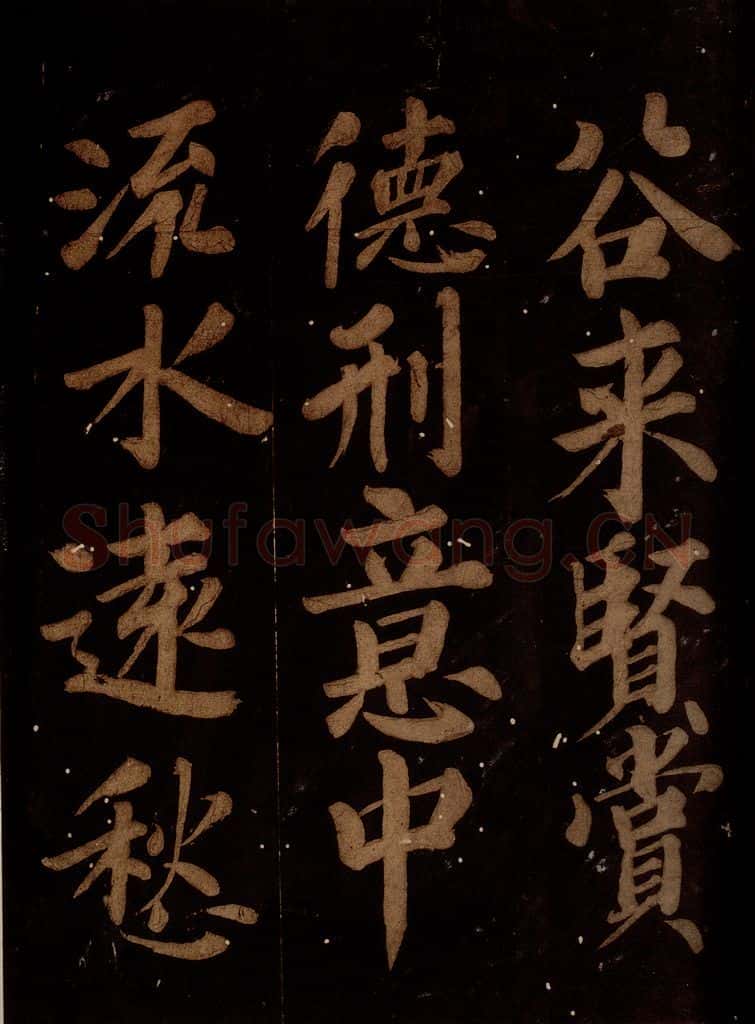 谷来賢賞
德刑意中
流水遠愁
Shufawang.CN